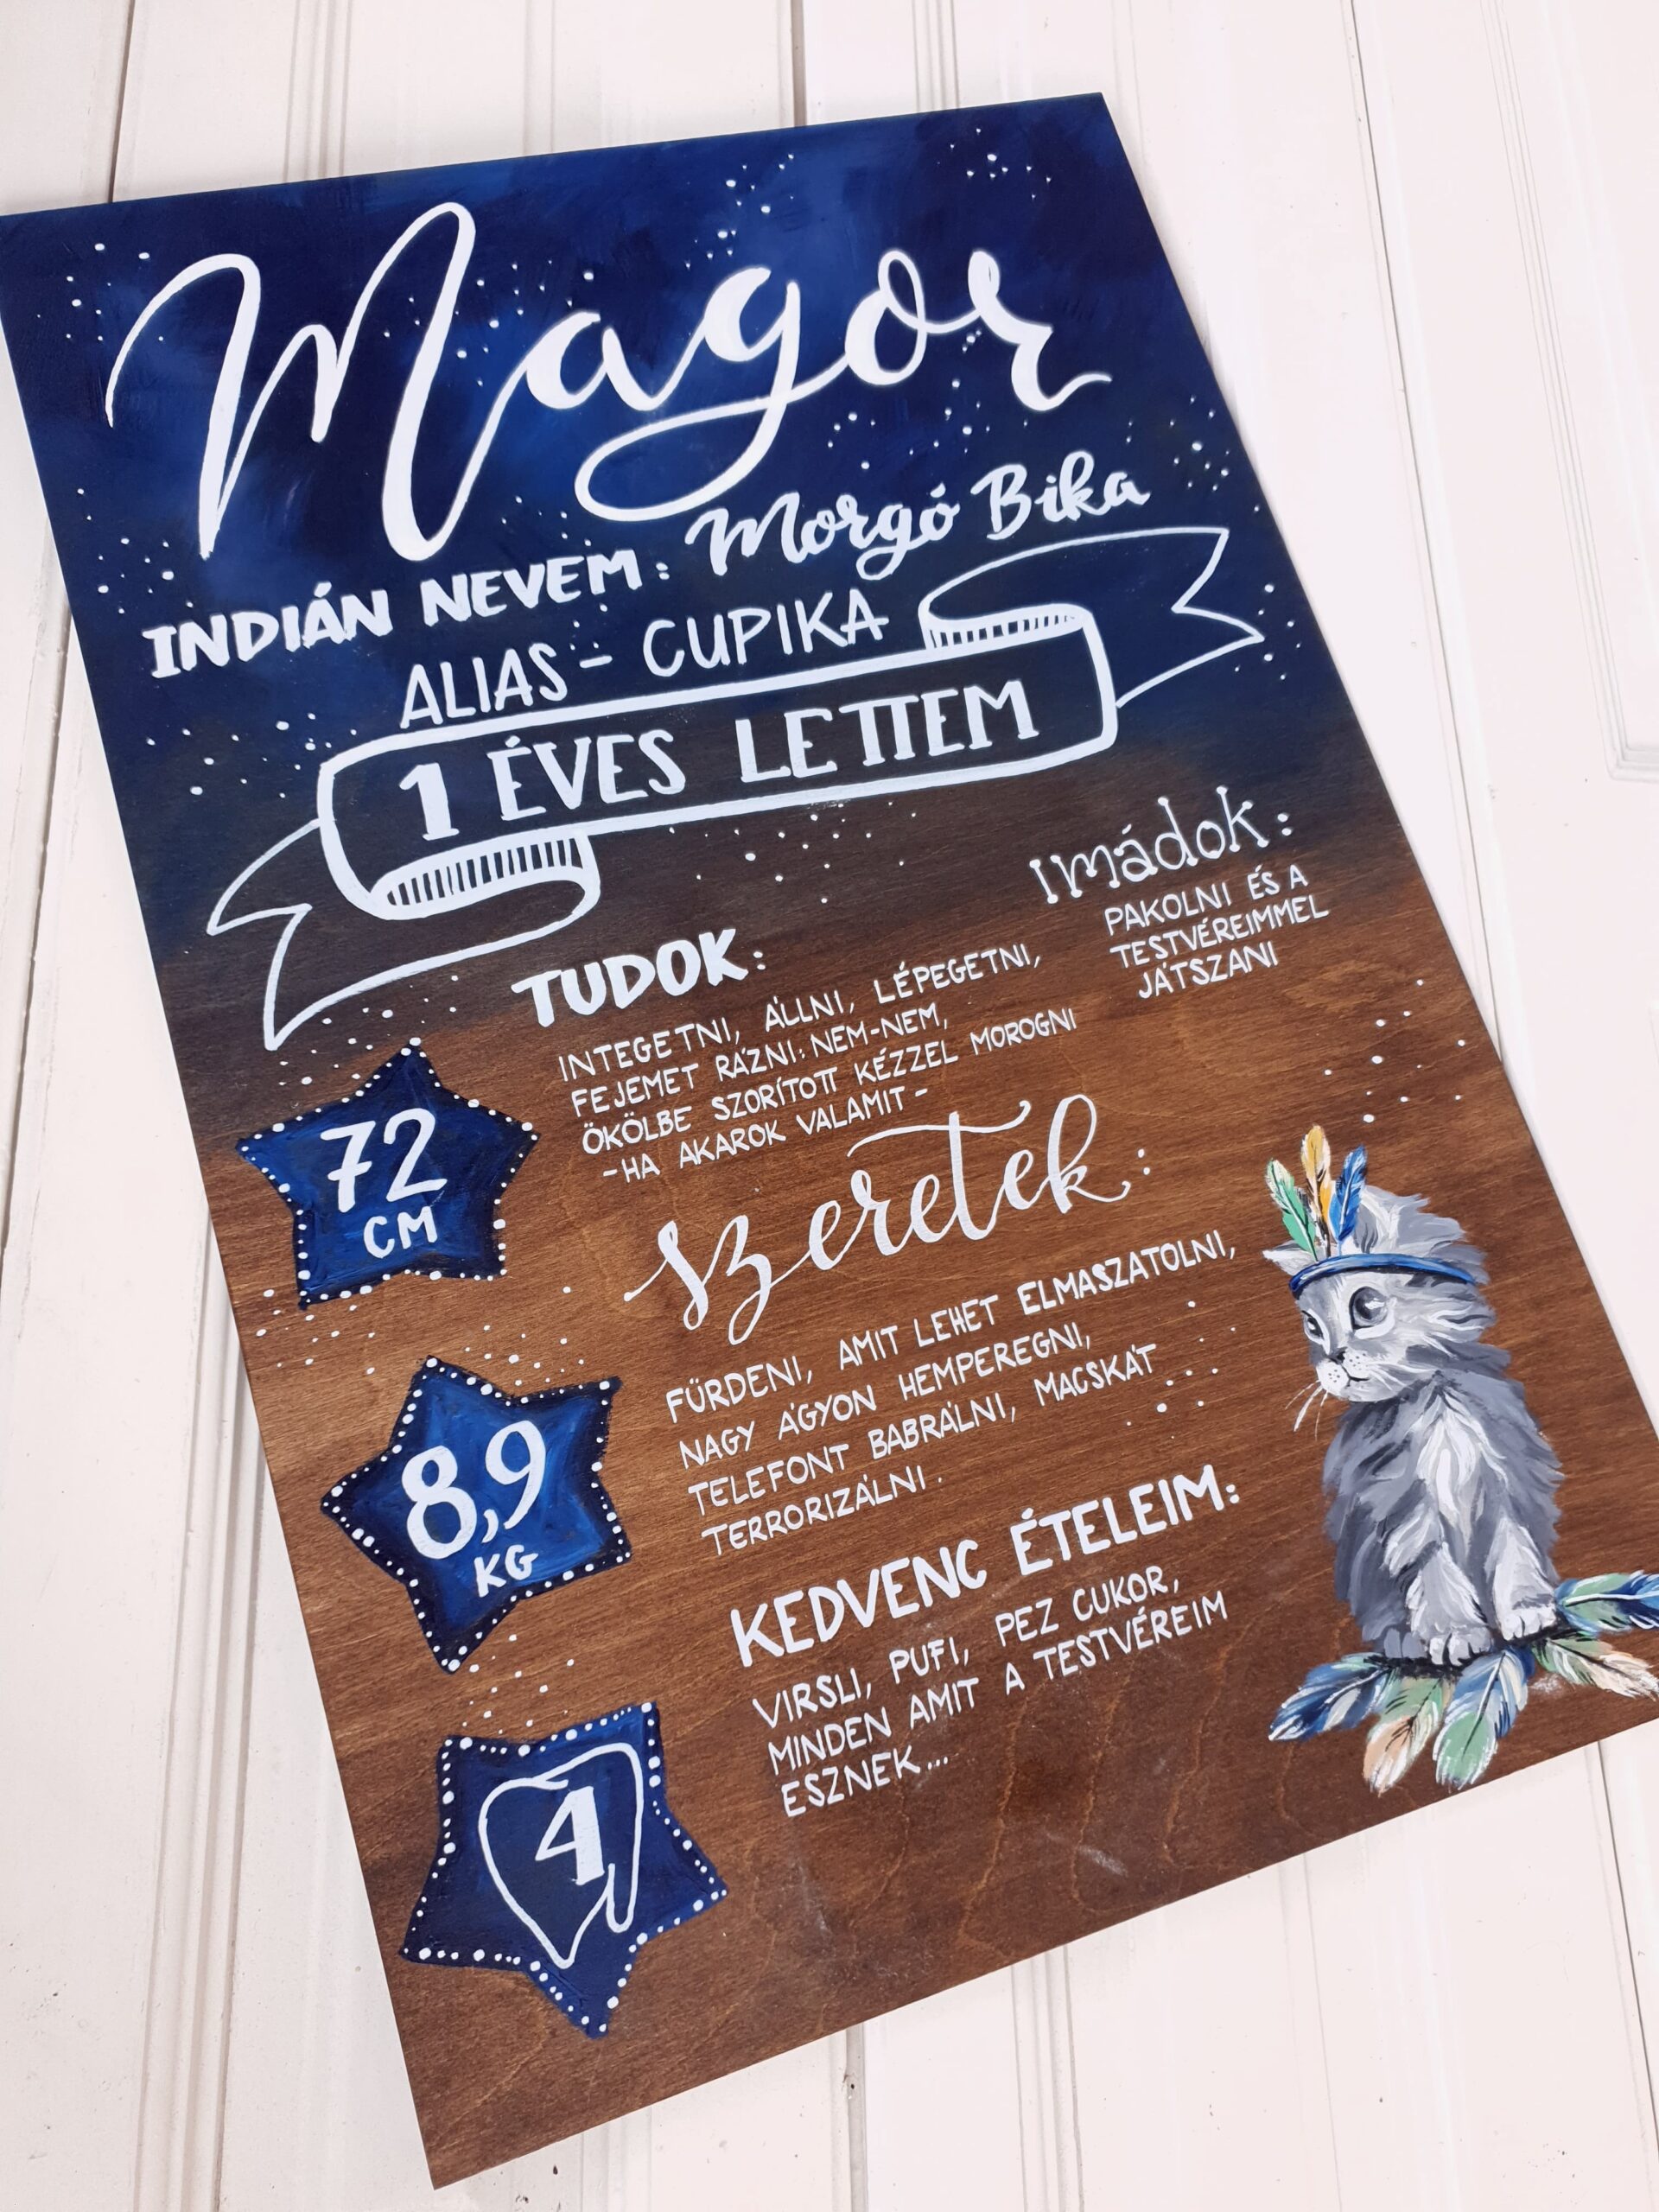 Magor
INDIÁN NEVEM: Morgó Bika
ALIAS - CUPIKA
1 ÉVES LETTEM
Imádok:
PAKOLNI ÉS A
TESTVÉREIMMEL
JÁTSZANI
TUDOK:
INTEGETNI, ÁLLNI, LÉPEGETNI,
FEJEMET RÁZNI: NEM-NEM,
ÖKÖLBE SZORÍTOTT KÉZZEL MOROGNI
-HA AKAROK VALAMIT-
72
CM
Szeretek:
FÜRDENI, AMIT LEHET ELMASZATOLNI,
NAGY ÁGYON HEMPEREGNI,
TELEFONT BABRÁLNI, MACSKÁT
TERRORIZÁLNI.
8,9
KG
KEDVENC ÉTELEIM:
VIRSLI, PUFI, PEZ CUKOR,
MINDEN AMIT A TESTVÉREIM
ESZNEK...
4